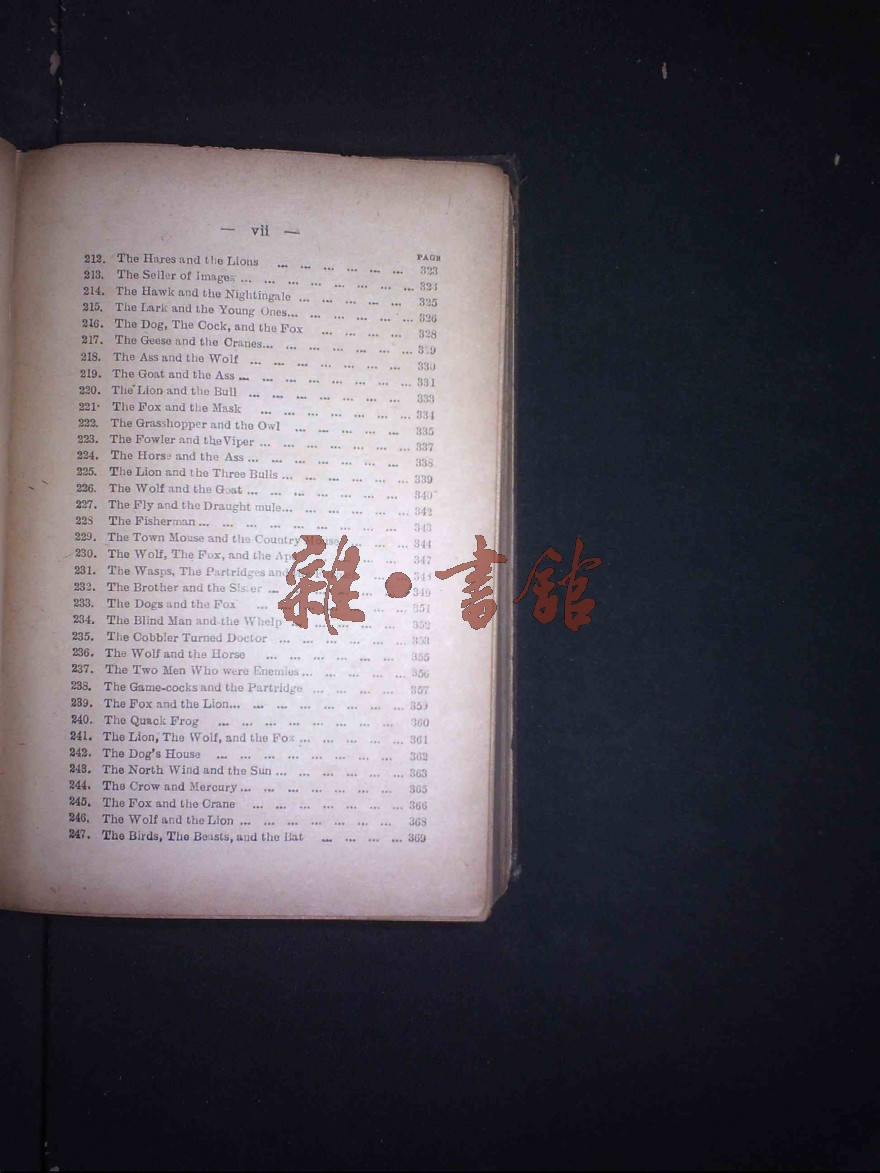 — vii —
PAGE
212. The Hares and the Lions ... ... ... ... ... ... 323
213. The Seller of Images ... ... ... ... ... ... ... ... 324
214. The Hawk and the Nightingale ... ... ... ... ... 325
215. The Lark and the Young Ones... ... ... ... ... ... 326
216. The Dog, The Cock, and the Fox ... ... ... ... 328
217. The Geese and the Cranes... ... ... ... ... ... ... 329
218. The Ass and the Wolf ... ... ... ... ... ... ... 330
219. The Goat and the Ass ... ... ... ... ... ... ... ... 331
220. The Lion and the Bull ... ... ... ... ... ... ... 333
221· The Fox and the Mask ... ... ... ... ... ... ... 334
222. The Grasshopper and the Owl ... ... ... ... ... 335
223. The Fowler and the Viper ... ... ... ... ... ... ... 337
224. The Horse and the Ass ... ... ... ... ... ... ... 338
225. The Lion and the Three Bulls ... ... ... ... ... ... 339
226. The Wolf and the Goat ... ... ... ... ... ... ... 340
227. The Fly and the Draught mule... ... ... ... ... ... 342
228 The Fisherman ... ... ... ... ... ... ... ... ... 343
229. The Town Mouse and the Country Mouse ... ... ... 344
230. The Wolf, The Fox, and the 347
231. The Wasps, The Partridges and 348
232. The Brother and the Sister ... 349
233. The Dogs and the Fox ... ... ... 351
234. The Blind Man and the Whelp ... ... ... 352
235. The Cobbler Turned Doctor ... ... ... ... ... ... 353
236. The Wolf and the Horse ... ... ... ... ... ... 355
237. The Two Men Who were Enemies ... ... ... ... ... 356
238. The Game-cocks and the Partridge ... ... ... ... 357
239. The Fox and the Lion... ... ... ... ... ... ... ... 359
240. The Quack Frog ... ... ... ... ... ... ... ... 360
241. The Lion, The Wolf, and the Fox ... ... ... ... ... 361
242. The Dog's House ... ... ... ... ... ... ... ... 362
243. The North Wind and the Sun ... ... ... ... ... ... 363
244. The Crow and Mercury ... ... ... ... ... ... ... ... 365
245. The Fox and the Crane ... ... ... ... ... ... ... 366
246. The Wolf and the Lion ... ... ... ... ... ... ... 368
247. The Birds, The Beasts, and the Bat ... ... ... ... 369
雜·書館